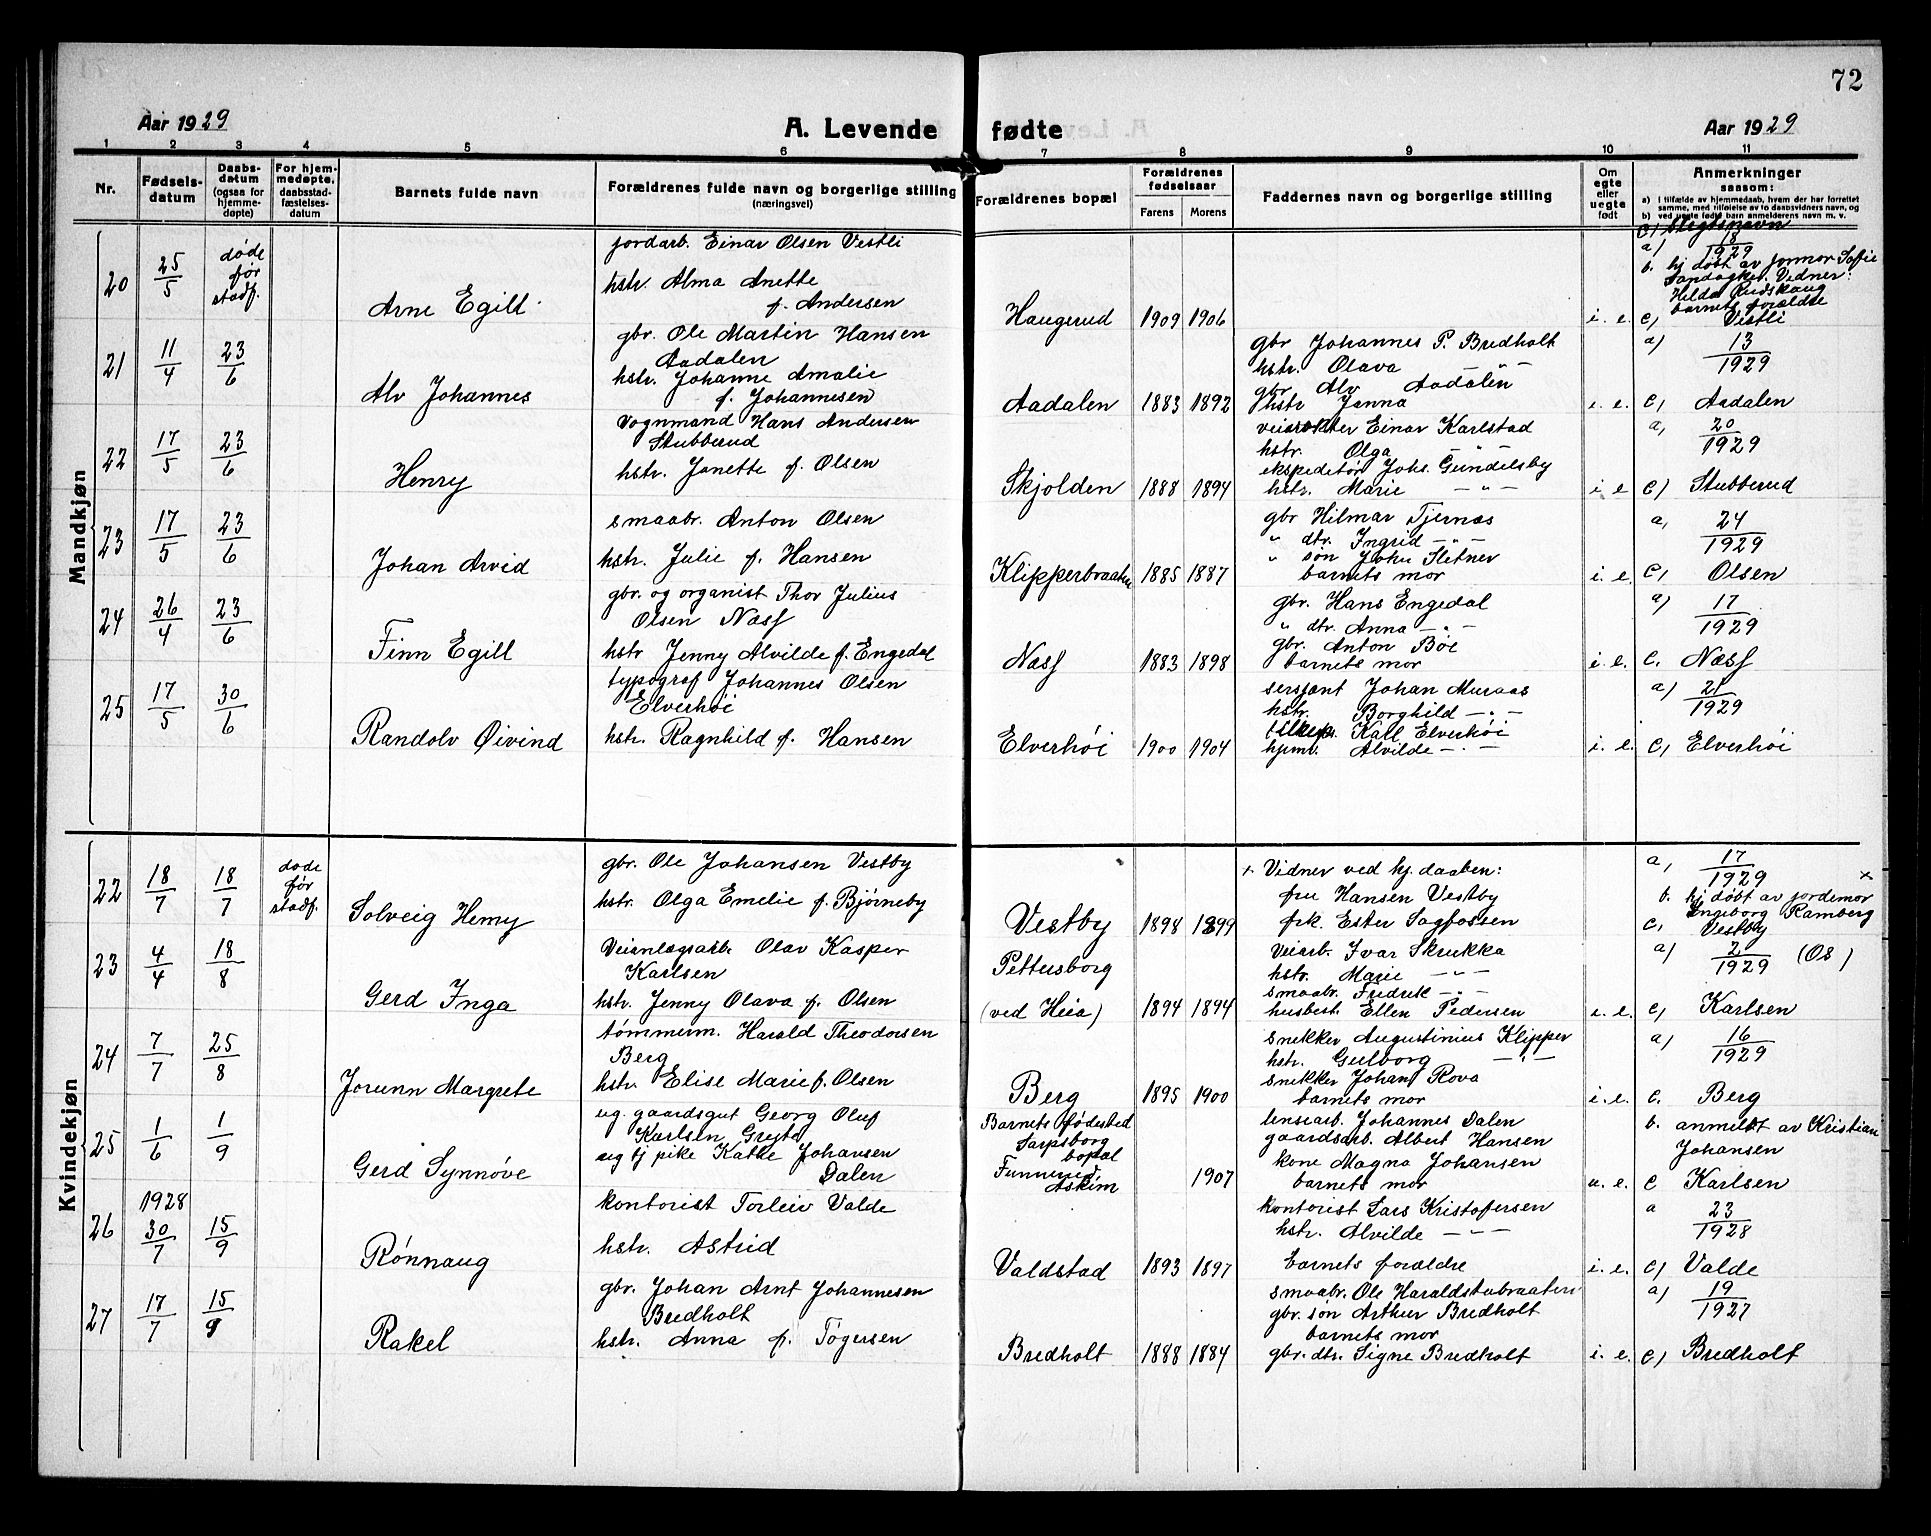 72
Aar 1929
A. Levende fødte
Aar 1929
1 2 3 4 5 6 7 8 9 10 11
Nr.
Fødsels-
datum
Daabs-
datum
(ogsaa for
hjemme-
døpte)
For hjem-
medøpte,
daabsstad-
fæstelses-
datum
Barnets fulde navn
Forældrenes fulde navn og borgerlige stilling
(næringsvei)
Forældrenes bopæl
Forældrenes
fødselsaar
Farens Morens
Faddernes navn og borgerlige stilling
Om
egte
eller
uegte
født
Anmerkninger
saasom:
a) i tilfælde av hjemmedaab, hvem der har forrettet
samme, med tilføielse av to daabsvidners navn, og
b) ved uegte født barn anmelderens navn m. v.
c) slegtsnavn
Mandkjøn
20 25/5 døde
før
stadf.
Arne Egill
jordarb. Einar Olsen Vestli
hstr. Alma Anette
f. Andersen
Haugerud 1909 1906
i. e.
a) 18/1929
b. hj døbt av jormor Sofie
Sandaker. Vidner:
Hilda Rudskaug
barnets forældre
c) Vestli
21 11/4 23/6
Alv Johannes
gbr. Ole Martin Hansen
Aadalen
hstr. Johanne Amalie
f. Johannesen
Aadalen 1883 1892
gbr Johannes P. Bredholt
hstr. Olava — " —
gbr Alv Aadalen
hstr Janna
i. e.
a) 13/1929
c) Aadalen
22 17/5 23/6
Henry
Vognmand Hans Andersen
Stubberud
hstr. Janette f. Olsen
Skjolden 1888 1894
veivokter Einar Karlstad
hstr. Olga — " —
ekspeditør Johs. Gundelsby
hstr. Marie — " —
i. e
a, 20/1929
c) Stubberud
23 17/5 23/6
Johan Arvid
smaabr. Anton Olsen
hstr. Julie f. Hansen
Klipperbraaten 1885 1887
gbr Hilmar Tjernæs
" dtr. Ingrid — " —
" søn John Sletner
barnets mor
i. e.
a, 24/1929
c, Olsen
24 26/4 23/6
Finn Egill
gbr. og organist Thor Julius
Olsen Næss
hstr Jenny Alvilde f. Engedal
Næss 1883 1898
gbr. Hans Engedal
" dtr. Anna — " —
gbr. Anton Bøe
barnets mor
i. e.
a) 17/1929
c. Næss
25 17/5 30/6
Randolv Øivind
typograf Johannes Olsen
Elverhøi
hstr. Ragnhild f. Hansen
Elverhøi 1900 1904
sersjant Johan Muraas
hstr. Borghild — " —
Karl Elverhøi
hjmv. Alvilde — " —
i. e.
a) 21/1929
c) Elverhøi
Kvindekjøn
22 18/7 18/7 døde
før
stadf.
Solveig Hemy
gbr. Ole Johansen Vestby
hstr. Olga Emelie f. Bjørneby
Vestby 1898 1899
+ Vidner ved hj. daaben:
fru Hansen Vestby
frk. Ester Sagfossen
a, 17/1929 x
b. hj døbt av jordemor
Engeborg Ramberg
c, Vestby
23 4/4 18/8
Gerd Inga
Veianlægsarb. Olav Kasper
Karlsen
hstr. Jenny Olava f. Olsen
Pettersborg
(ved Heia) 1894 1894
Veiarb. Ivar Skrukka
hstr. Marie — " —
smaabr. Fredrik — " —
husbest. Ellen Pedersen
i. e.
a) 2/1929 (Os)
c) Karlsen
24 7/7 25/8
Jorunn Margrete
tømmerm. Harald Theodorsen
Berg
hstr. Elise Marie f. Olsen
Berg 1895 1900
snekker Augustinius Klipper
hstr. Gulborg — " —
snekker Johan Rova
barnets mor
i. e.
a) 16/1929
c. Berg
25 1/6 1/9
Gerd Synnøve
ug. gaardsgut Georg Oluf
Karlsen
ug tj pike Kathe Johansen
Dalen
Barnets fødested
Sarpsborg
bopæl
Askim 1907
lensearb. Johannes Dalen
gaardsarb. Albert Hansen
kone Magna Johansen
barnets mor
u. e.
b. anmeldt av Kristian
Johansen
c Karlsen
26 1928
30/7 15/9
Rønnaug
kontorist Torleiv Valde
hstr. Astrid
Valdstad 1893 1897
kontorist Lars Kristofersen
hstr. Alvilde — " —
barnets forældre
i. e.
a 23/1928
c) Valde
27 17/7 15/9
Rakel
gbr. Johan Arnt Johannesen
Bredholt
hstr. Anna f. Tøgersen
Bredholt 1888 1884
smaabr. Ole Haraldstubraaten
gbr. søn Arthur Bredholt
barnets mor
gbr. dtr. Signe Bredholt
i. e.
a) 19/1927
c) Bredholt